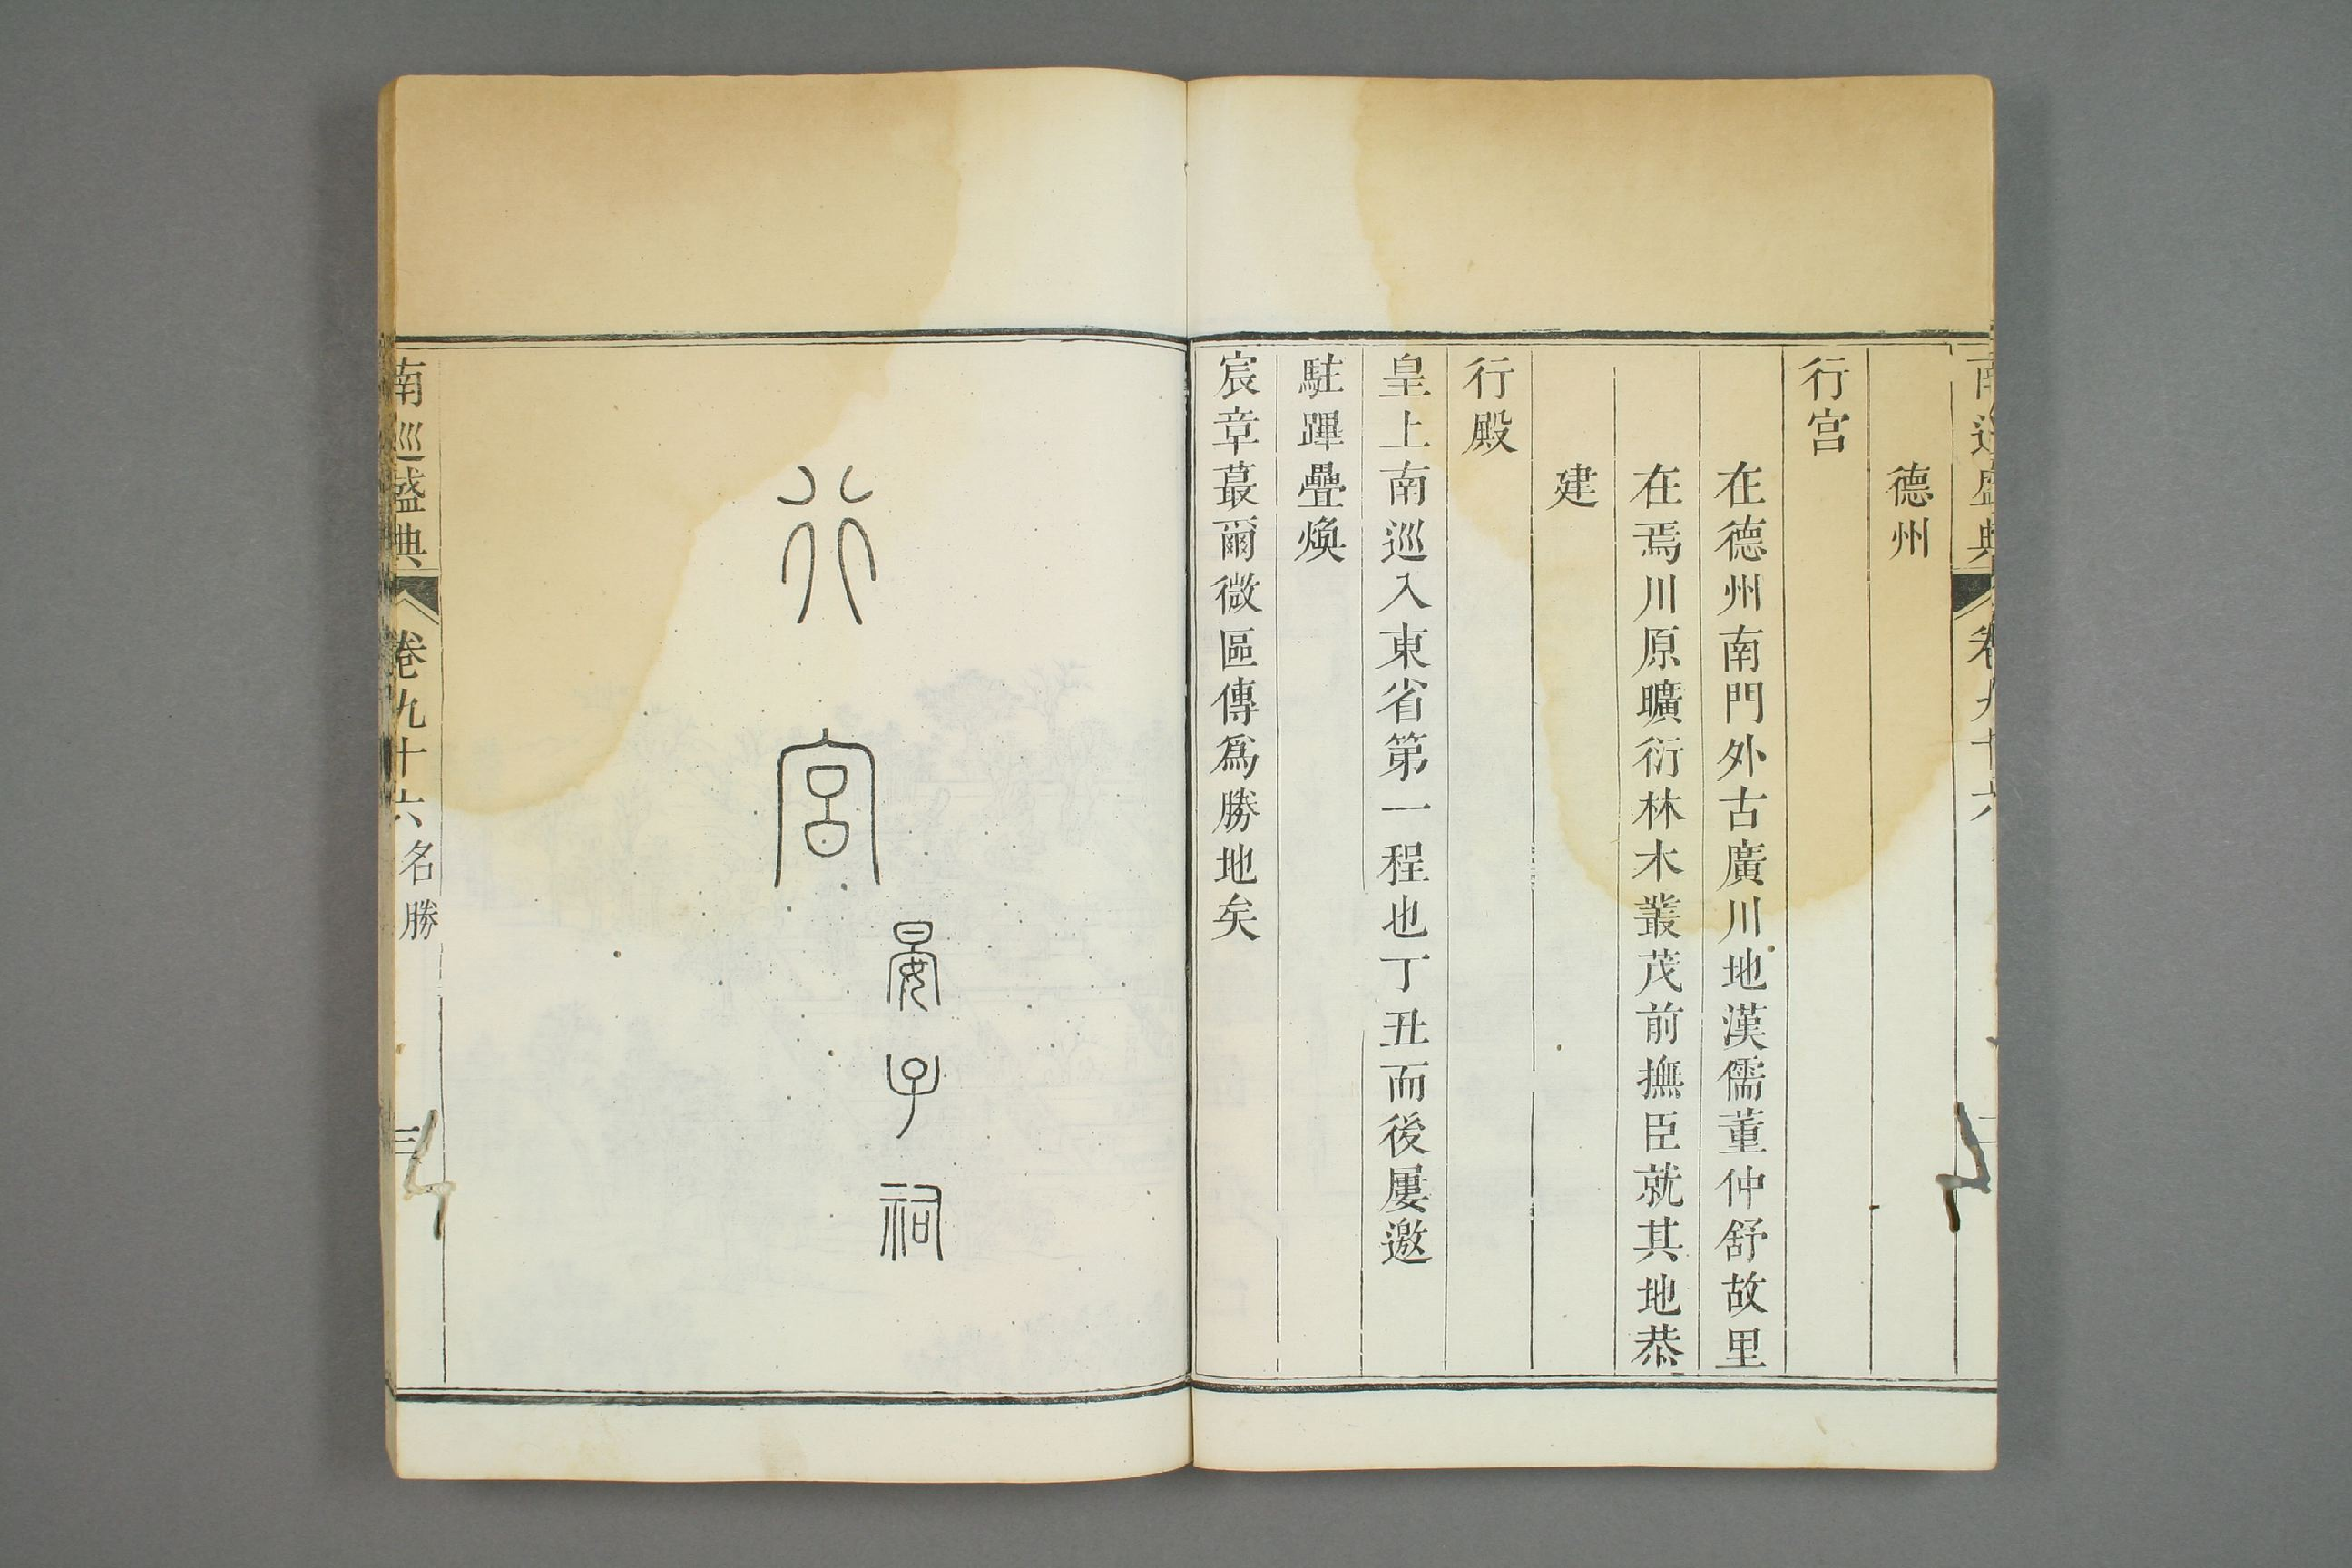 南巡盛典
卷九十六
德州
行宮
在德州南門外古廣川地漢儒董仲舒故里
在焉川原曠衍林木叢茂前撫臣就其地恭
建
行殿
皇上南巡入東省第一程也丁丑而後屢邀
駐蹕疊煥
宸章蕞爾微區傳爲勝地矣
晏子祠
行宮
南巡盛典
卷九十六
名勝
三